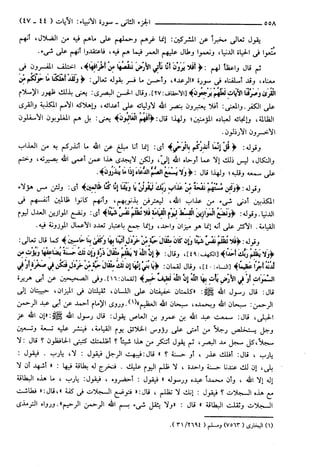 ٥٥٨ الجزء الثاني - سورة الأنبياء: الآيات (٤٤ - ٤٧)
يقول تعالى مخبراً عن المشركين: إنما غرهم وحملهم على ماهم فيه من الضلال، أنهم
متعوا في الحياة الدنيا، ونعموا وطال عليهم العمر فيما هم فيه، فاعتقدوا أنهم على شيء.
ثم قال واعظاً لهم: ﴿أفلا يرون أنا نأتي الأرض ننقصها من أطرافها﴾، اختلف المفسرون في
معناه، وقد أسلفناه في سورة «الرعد»، وأحسن ما فسر بقوله تعالى: ﴿ولقد أهلكنا ما حولكم من
القرى وصرفنا الآيات لعلهم يرجعون﴾ [الأحقاف: ٢٧]. وقال الحسن البصري: يعني بذلك ظهور الإسلام
على الكفر، والمعنى: أفلا يعتبرون بنصر الله لأوليائه على أعدائه، وإهلاكه الأمم المكذبة والقرى
الظالمة، وإنجائه لعباده المؤمنين؛ ولهذا قال: ﴿أفهم الغالبون﴾ يعني: بل هم المغلوبون الأسفلون
الأخسرون الأرذلون.
وقوله: ﴿قل إنما أنذركم بالوحي﴾ أي: إنما أنا مبلغ عن الله ما أنذركم به من العذاب
والنكال، ليس ذلك إلا عما أوحاه الله إليّ، ولكن لا يجدي هذا عمن أعمى الله بصيرته، وختم
على سمعه وقلبه؛ ولهذا قال: ﴿ولا يسمع الصم الدعاء إذا ما ينذرون﴾.
وقوله: ﴿ولئن مستهم نفحة من عذاب ربك ليقولن يا ويلنا إنا كنا ظالمين﴾ أي: ولئن مس هؤلاء
المكذبين أدنى شيء من عذاب الله، ليعترفن بذنوبهم، وأنهم كانوا ظالمين أنفسهم في
الدنيا. وقوله: ﴿ونضع الموازين القسط ليوم القيامة فلا تظلم نفس شيئا﴾ أي: ونضع الموازين العدل ليوم
القيامة. الأكثر على أنه إنما هو ميزان واحد، وإنما جمع باعتبار تعدد الأعمال الموزونة فيه.
وقوله: ﴿فلا تظلم نفس شيئا وإن كان مثقال حبة من خردل أتينا بها وكفى بنا حاسبين﴾ كما قال تعالى:
﴿ولا يظلم ربك أحدا﴾ [الكهف: ٤٩]، وقال: ﴿إن الله لا يظلم مثقال ذرة وإن تك حسنة يضاعفها ويؤت من
لدنه أجرا عظيما﴾ [النساء: ٤٠]، وقال لقمان: ﴿يا بني إنها إن تك مثقال حبة من خردل فتكن في صخرة أو في
السموات أو في الأرض يأت بها الله إن الله لطيف خبير﴾ [لقمان: ١٦]. وفي الصحيحين عن أبي هريرة
قال: قال رسول الله ﷺ: «كلمتان خفيفتان على اللسان، ثقيلتان في الميزان، حبيبتان إلى
الرحمن: سبحان الله وبحمده، سبحان الله العظيم»(١). وروى الإمام أحمد عن أبي عبد الرحمن
الحبلي، قال: سمعت عبد الله بن عمرو بن العاص يقول: قال رسول الله ﷺ: «إن الله عز
وجل يستخلص رجلاً من أمتي على رؤوس الخلائق يوم القيامة، فينشر عليه تسعة وتسعين
سجلاً، كل سجل مد البصر، ثم يقول أتنكر من هذا شيئاً؟ أظلمتك كتبتي الحافظون؟ قال: لا
يا رب، قال: أفلك عذر، أو حسنة؟ قال: فيبهت الرجل فيقول: لا، يا رب. فيقول:
بلى، إن لك عندنا حسنة واحدة، لا ظلم اليوم عليك. فتخرج له بطاقة فيها: «أشهد أن لا
إله إلا الله، وأن محمداً عبده ورسوله» فيقول: أحضروه، فيقول: يا رب، ما هذه البطاقة
مع هذه السجلات؟ فيقول: إنك لا تظلم، قال: «فتوضع السجلات في كفة»، قال: «فطاشت
السجلات وثقلت البطاقة» قال: «ولا يثقل شيء بسم الله الرحمن الرحيم». ورواه الترمذي
(١) البخاري (٧٥٦٣) ومسلم (٢٦٩٤/ ٣١)